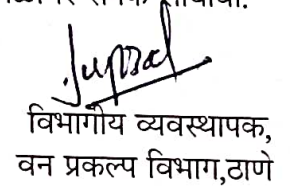 विभागीय व्यवस्थापक,
वन प्रकल्प विभाग,ठाणे